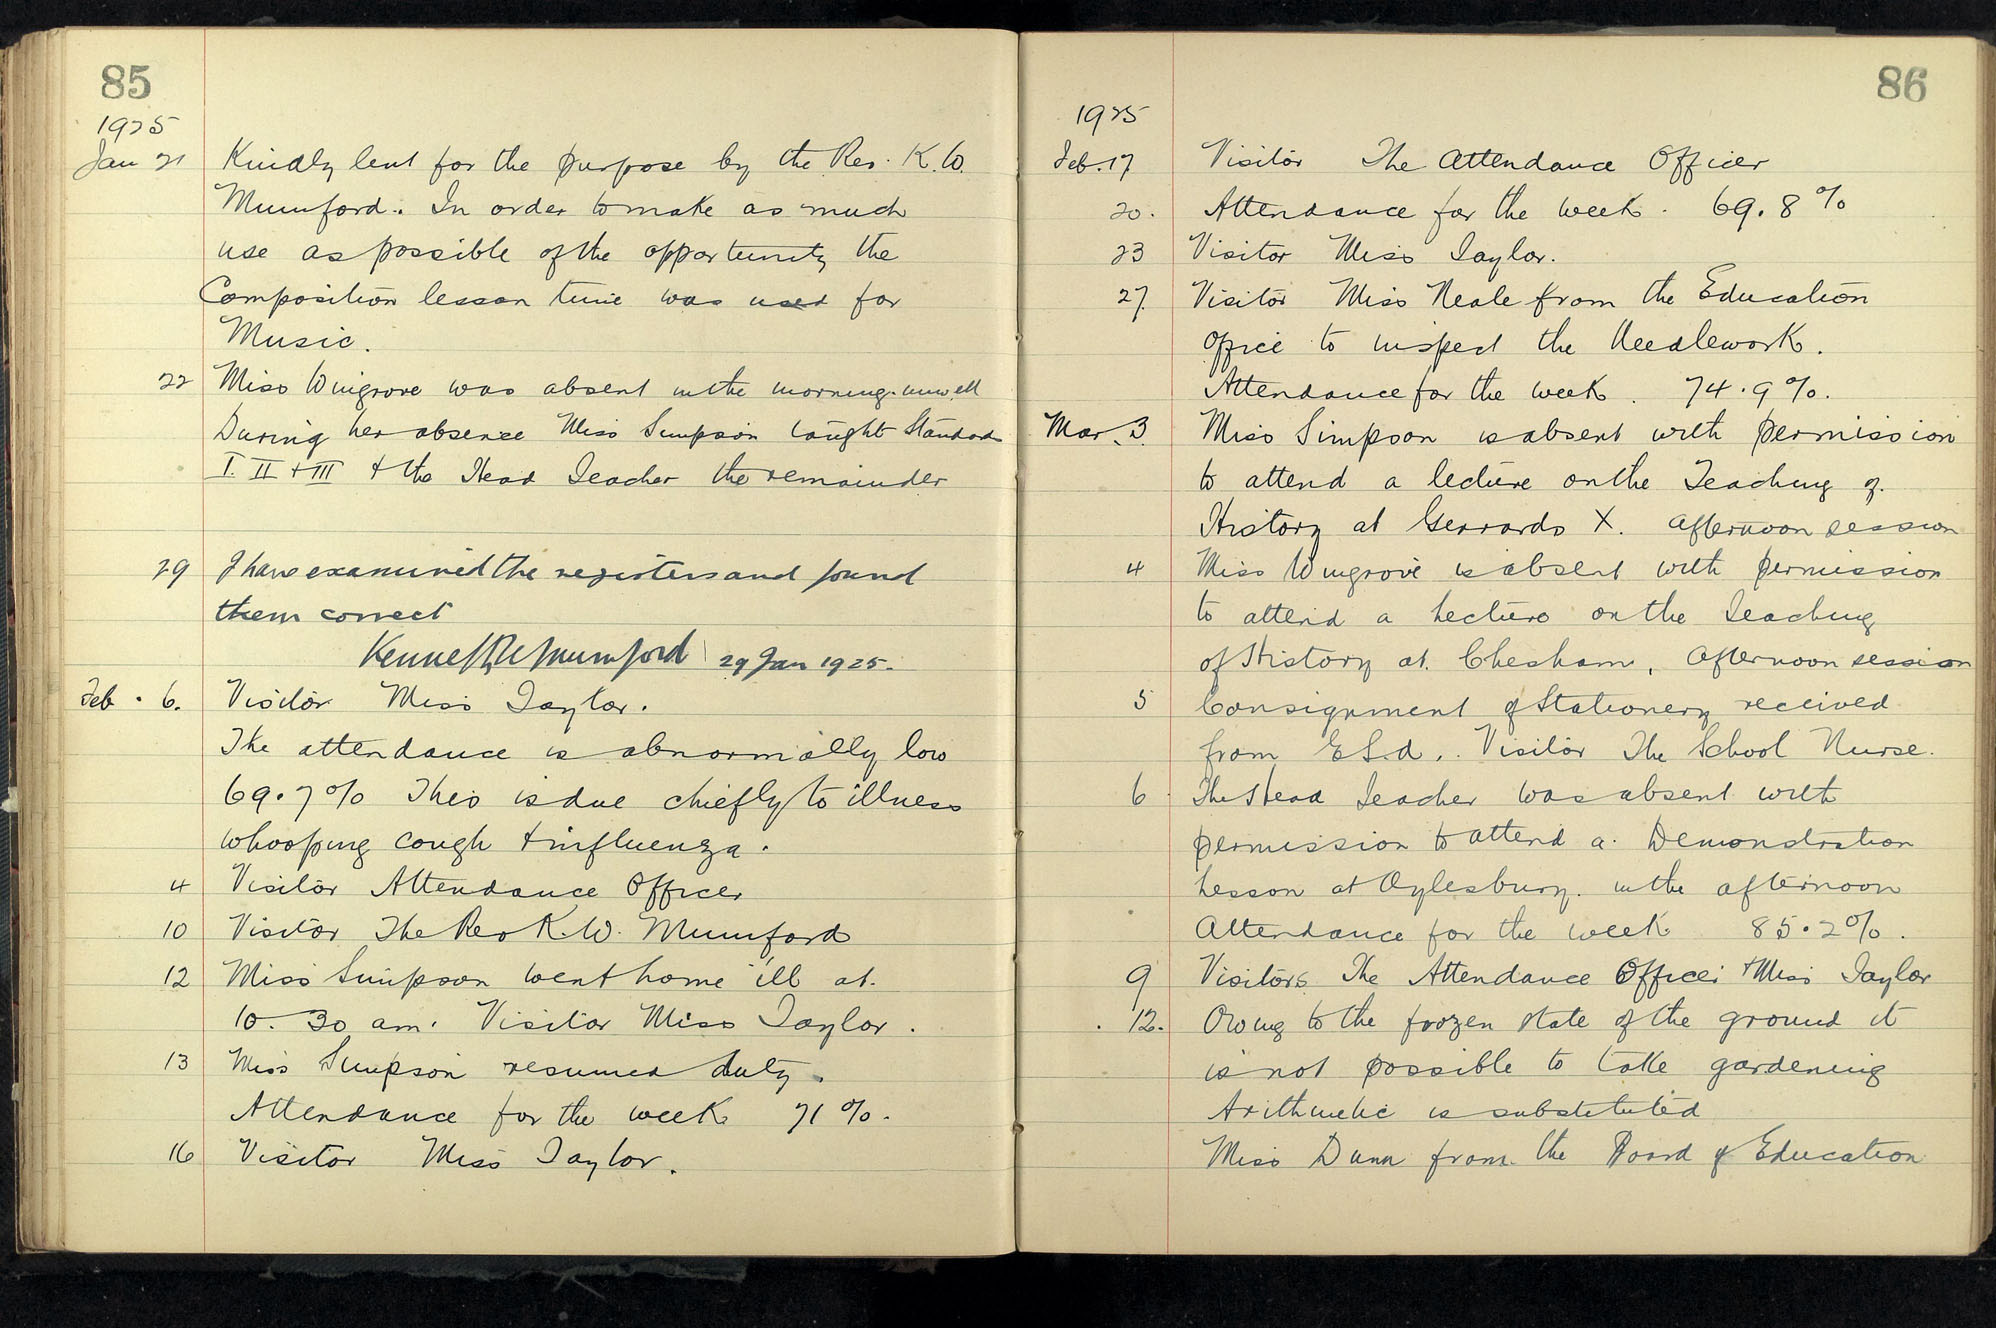 85
1925
Jan 21 Kindly lent for the purpose by the Rev. K.W.
Mumford. In order to make as much
use as possible of the opportunity the
Composition lesson time was used for
Music.
22 Miss Wingrove was absent in the morning. unwell
During her absence Miss Simpson taught Standards
I. II + III + the Head Teacher the remainder
29 I have examined the registers and found
them correct
Kenneth W Mumford 29 Jan 1925.
Feb. 6. Visitor Miss Taylor.
The attendance is abnormally low
69.7% This is due chiefly to illness
whooping cough + influenza.
4 Visitor Attendance Officer
10 Visitor The Rev K.W. Mumford
12 Miss Simpson went home ill at.
10.30 am. Visitor Miss Taylor.
13 Miss Simpson resumed duty.
Attendance for the week 71%.
16 Visitor Miss Taylor.
86
1925
Feb. 17 Visitor The Attendance Officer
20. Attendance for the week. 69.8%
23 Visitor Miss Taylor.
27. Visitor Miss Neale from the Education
Office to inspect the Needlework.
Attendance for the week. 74.9%.
Mar. 3. Miss Simpson is absent with permission
to attend a lecture on the Teaching of
History at Gerrards X. Afternoon session
4 Miss Wingrove is absent with permission
to attend a Lecture on the Teaching
of History at Chesham, Afternoon session
5 Consignment of Stationery received
from E.S.A.. Visitor The School Nurse.
6 The Head Teacher was absent with
permission to attend a Demonstration
Lesson at Aylesbury. in the afternoon
Attendance for the week 85.2%.
9 Visitors The Attendance Officer + Miss Taylor
12. Owing to the frozen state of the ground it
is not possible to take gardening
Arithmetic is substituted
Miss Dunn from the Board of Education